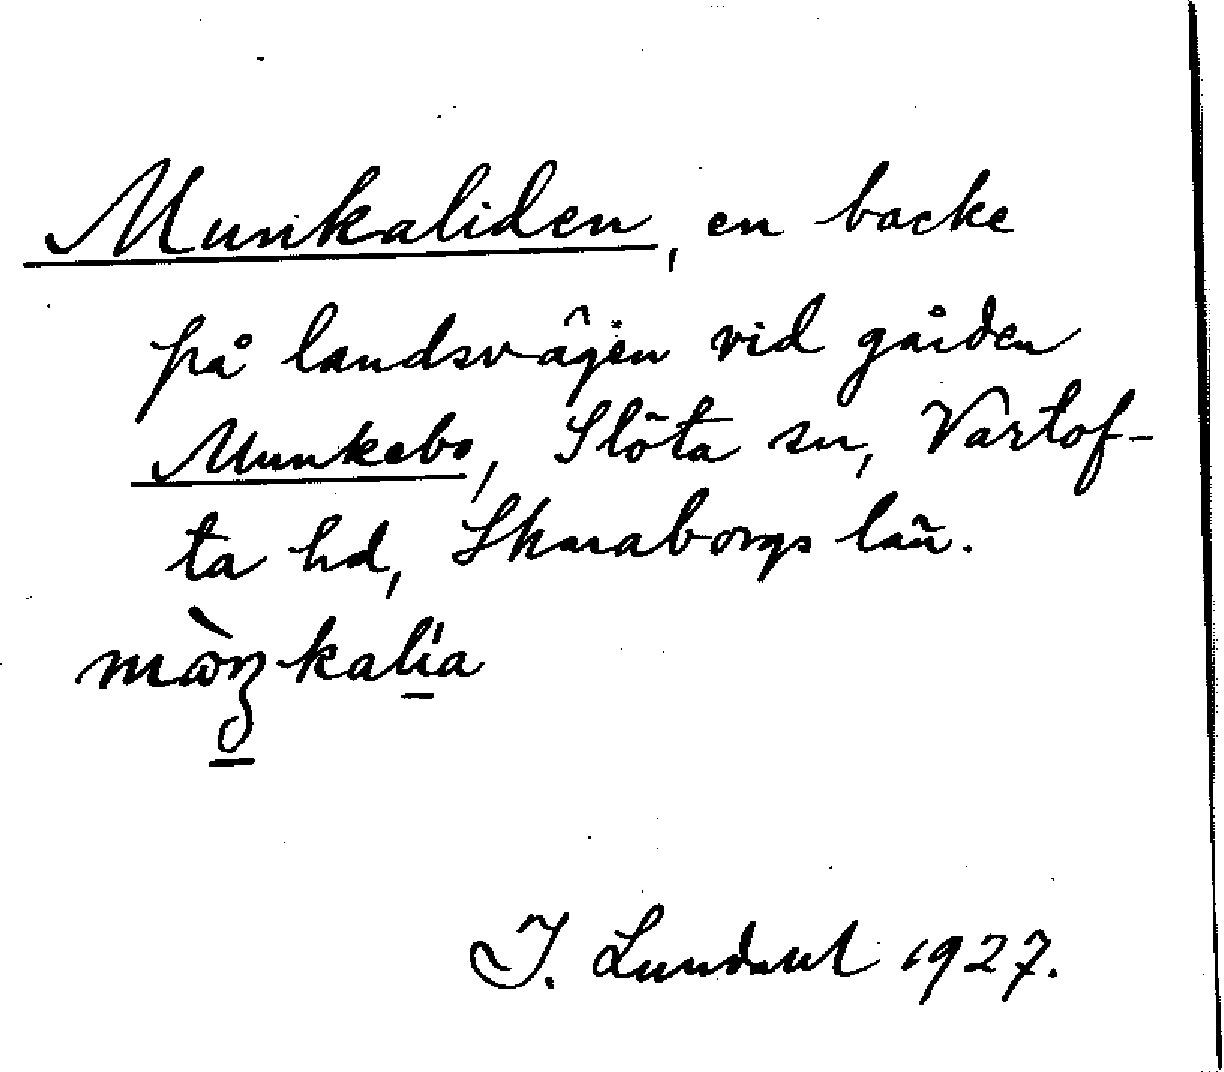 Munkaliden, en backe
på landsvägen vid gården
Munkebo, Slöta sn, Vartof-
ta hd, Skaraborgs län.
I. Lundahl 1927.